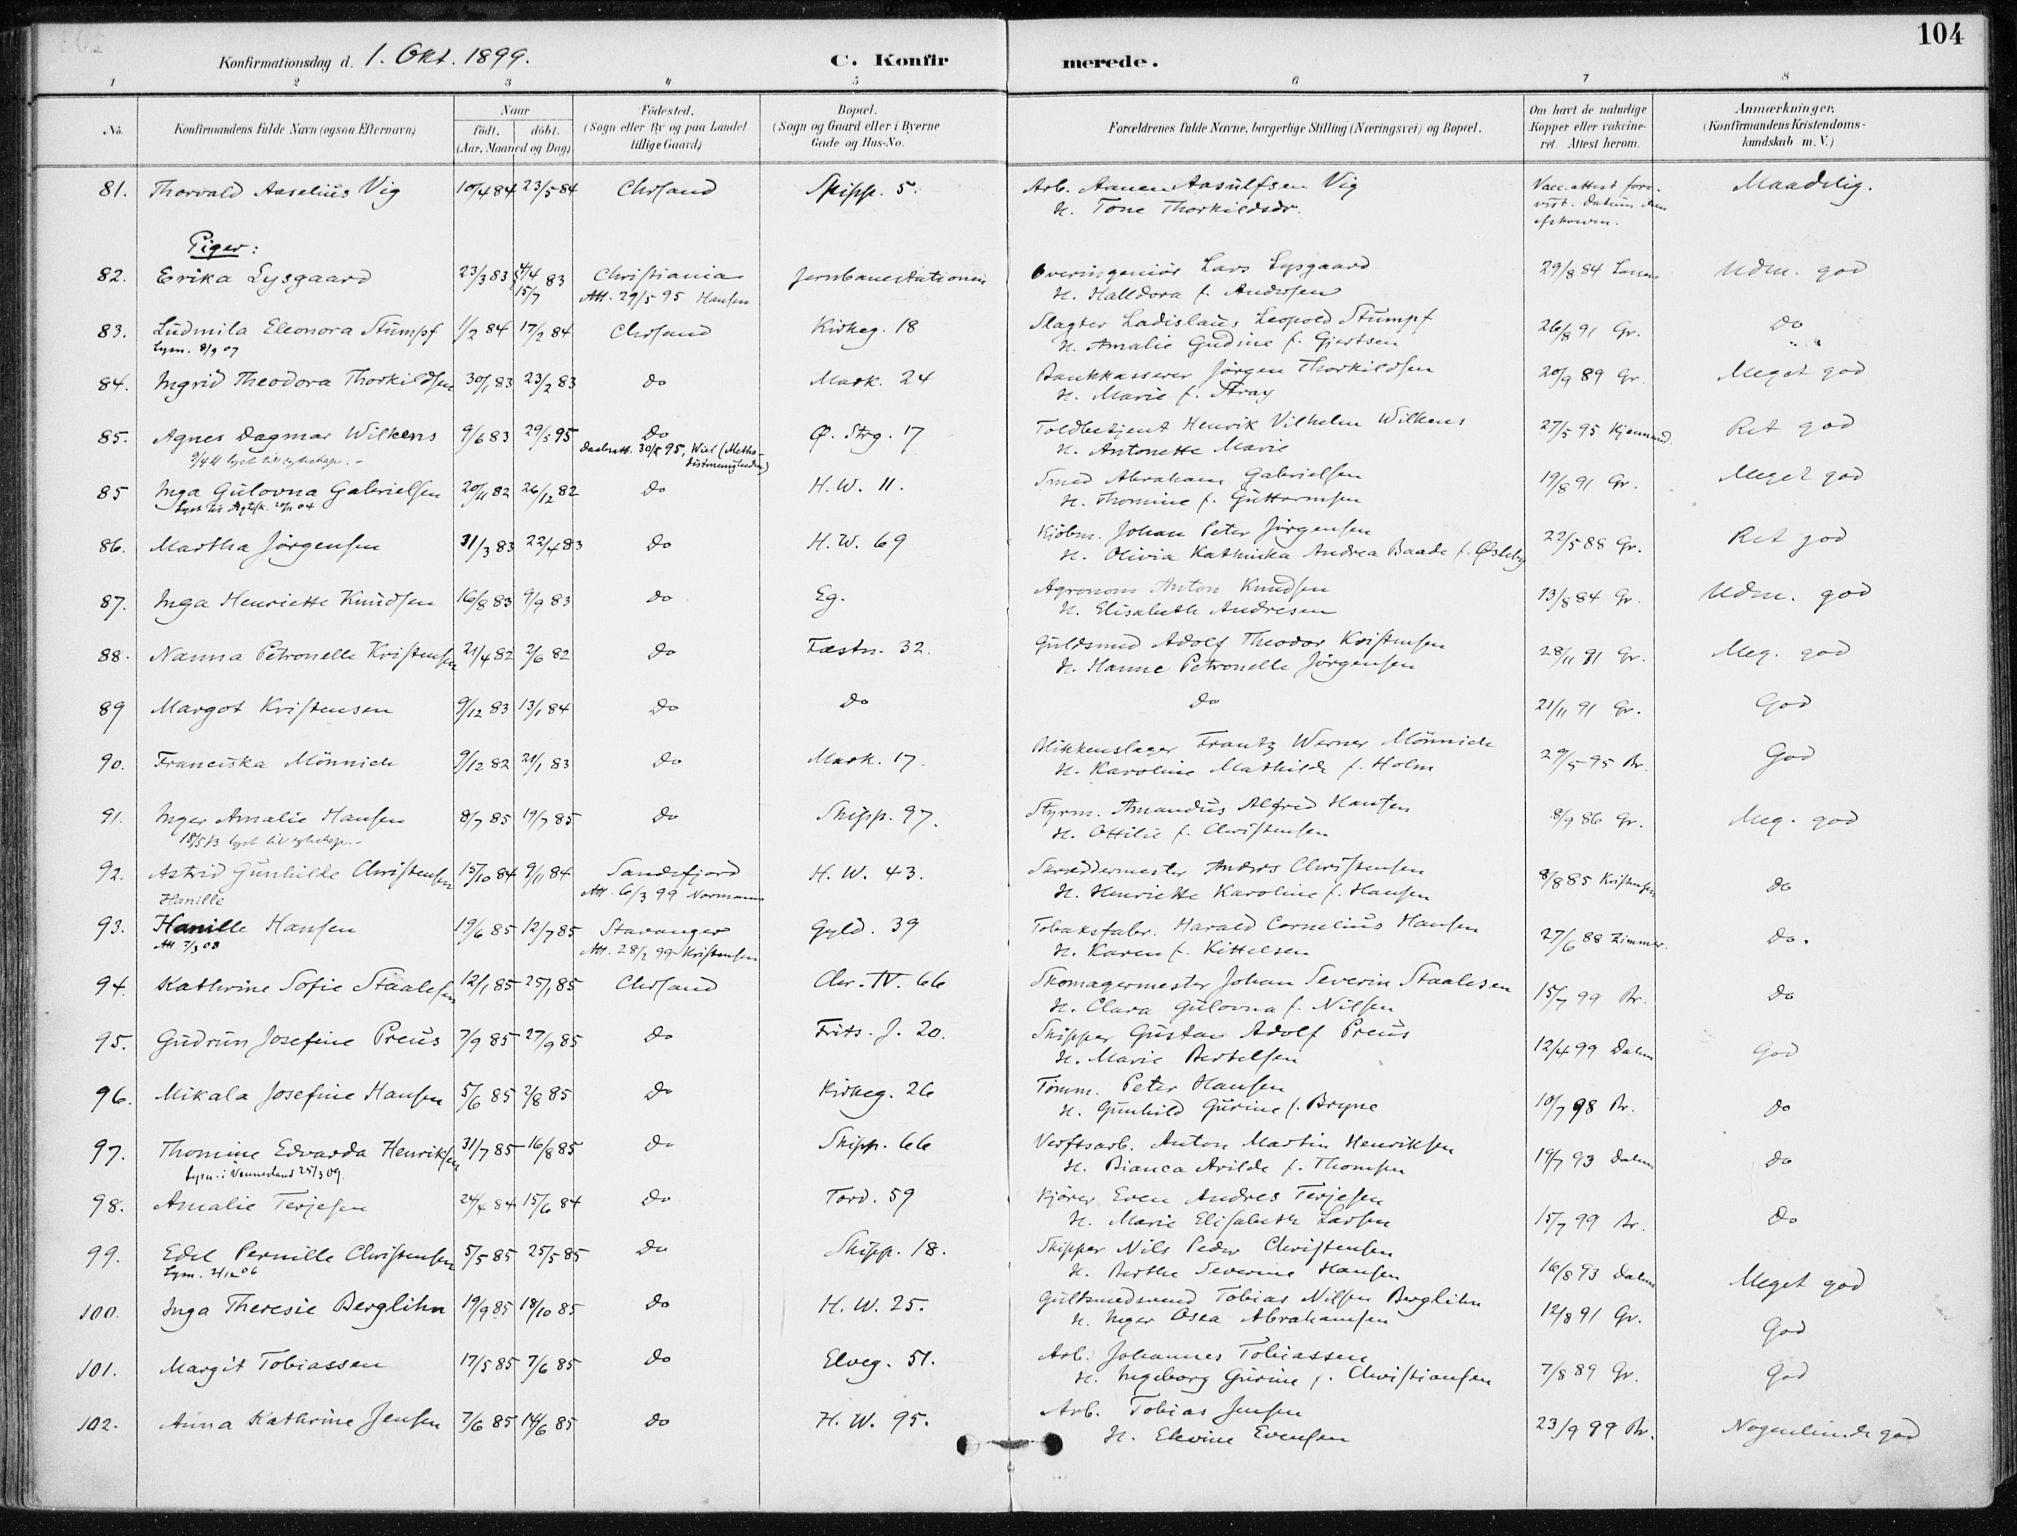 104
Konfirmationsdag d. 1. Okt. 1899. C. Konfirmerede.
1 2 3 4 5 6 7 8
No. Konfirmandens fulde Navn (ogsaa Efternavn) Naar født. døbt. (Aar, Maaned og Dag) Fødested. (Sogn eller By og paa Landet tillige Gaard) Bopæl. (Sogn og Gaard eller i Byerne Gade og Hus-No. Forældrenes fulde Navne, borgerlige Stilling (Næringsvei) og Bopæl. Om havt de naturlige Kopper eller vakcineret. Attest herom. Anmærkninger. (Konfirmandens Kristendomskundskab m. V.)
81. Thorvald Aaselius Vig 10/4 84 23/5 84 Chrsand Skipp. 5. Arb. Aanen Aasulfsen Vig Vacc. attest fore- Maadelig.
H. Tone Thorkildsdr. vist. Datum
Piger:
82. Erika Lysgaard 23/3 83 4/4 83 Christiania Jernbanestationen Overingeniør Lars Lysgaard 29/8 84 Udm. god
15/7 Att. 29/5 95 Hansen H. Halldora f. Andersen
83. Ludmila Eleonora Stumpf 1/2 84 17/2 84 Chrsand Kirkeg. 18 Slagter Ladislaus Leopold Stumpf 26/8 91 Gr. Do
Lysn. 8/9 07 H. Amalie Gudine f. Gjertsen " "
84. Ingrid Theodora Thorkildsen 30/1 83 23/2 83 Do Mark. 24 Bankkasserer Jörgen Thorkildsen 20/9 89 Gr. Meget god
H. Marie f. Stray
85. Agnes Dagmar Wilkens 9/6 83 29/5 95 Do Ø. Strg. 17 Toldbetjent Henrik Vilhelm Wilkens 27/5 95 Ret god
Daabsatt. 30/5 95, Wiel (Methodistmenigheden) H. Antonette Marie
85 Inga Gulovna Gabrielsen 20/11 82 26/12 82 Do H. W. 11. Smed Abraham Gabrielsen 19/8 91 Gr. Meget god
H. Thomine f. Guttormsen
86. Martha Jörgensen 31/3 83 22/4 83 Do H. W. 69 Kjöbm. Johan Peter Jörgensen 22/5 88 Gr. Ret god
H. Olivia Kathinka Andrea Baade f. Øsleby
87. Inga Henriette Knudsen 16/8 83 9/9 83 Do Eg. Agronom Anton Knudsen 13/8 84 Gr. Udm. god
H. Elisabeth Andresen
88. Nanna Petronelle Kristensen 21/4 82 2/6 82 Do Fæstn. 32. Guldsmed Adolf Theodor Kristensen 28/11 91 Gr. Meg. god
H. Hanne Petronelle Jörgensen
89 Margot Kristensen 9/12 83 13/1 84 Do Do Do 21/11 91 Gr. God
90. Franciska Mönnich 9/12 82 21/1 83 Do Mark. 17. Blikkenslager Frantz Werner Mönnich 29/5 95 Br. God
H. Karoline Mathilde f. Holm
91. Inger Amalie Hansen 8/7 85 19/7 85 Do Skipp. 97. Styrm. Amandus Alfred Hansen 8/9 86 Gr. Meg. god
H. Ottilie f. Christensen
92. Astrid Gunhilde Christensen 15/10 84 9/11 84 Sandefjord H. W. 43. Skræddermester Anders Christensen 8/8 85 Kristensen do
Hanille Att. 6/3 99 Normann H. Henriette Karoline f. Hansen
93. Hanille Hansen 19/6 85 12/7 85 Stavanger Gyld. 39 Tobaksfabr. Harald Cornelius Hansen 27/6 88 Zimmer. do.
Att 7/3 08 Att. 28/2 99 Kristensen H. Karen f. Kittelsen
94. Kathrine Sofie Staalesen 12/1 85 25/1 85 Chrsand Chr. IV. 66 Skomagermester Johan Severin Staalesen 15/7 99 Br. do
H. Clara Gulovna f. Nilsen
95. Gudrun Josefine Preus 7/9 85 27/9 85 Do Frits. J. 20. Skipper Gustav Adolf Preus 12/4 99 Dalen God
H. Marie Bertelsen
96. Mikala Josefine Hansen 5/6 85 2/8 85 Do Kirkeg. 26 Tømm. Peter Hansen 10/7 98 Br. do
H. Gunhild Gurine f. Bryne
97. Thomine Edvarda Henriksen 31/7 85 16/8 85 Do Skipp. 66 Verftsarb. Anton Martin Henriksen 19/7 93 Dalen do
Lysn. i Vennesland 25/3 09. H. Bianca Arilde f. Thomsen
98. Amalie Terjesen 24/4 84 15/6 84 Do Tord. 59 Kjører Even Andres Terjesen 15/7 99 Br. do
H. Marie Elisabeth Larsen
99. Edel Pernille Christensen 5/5 85 25/5 85 Do Skipp. 18. Skipper Nils Peder Christensen 16/8 93 Dalen Meget god
Lysn. 2/12 06 H. Berthe Severine Hansen
100. Inga Theresie Berglihn 19/9 85 18/10 85 Do H. W. 25. Guldsmedsvend Tobias Nilsen Berglihn 12/8 91 Gr. God
H. Inger Osea Abrahamsen
101. Margit Tobiassen 17/5 85 7/6 85 Do Elveg. 51. Arb. Johannes Tobiassen 7/8 89 Gr. God
H. Ingeborg Gurine f. Christiansen
102. Anna Kathrine Jensen 7/6 85 14/6 85 Do H. W. 95. Arb. Tobias Jensen 23/9 99 Br. Nogenlunde god
H. Elevine Evensen